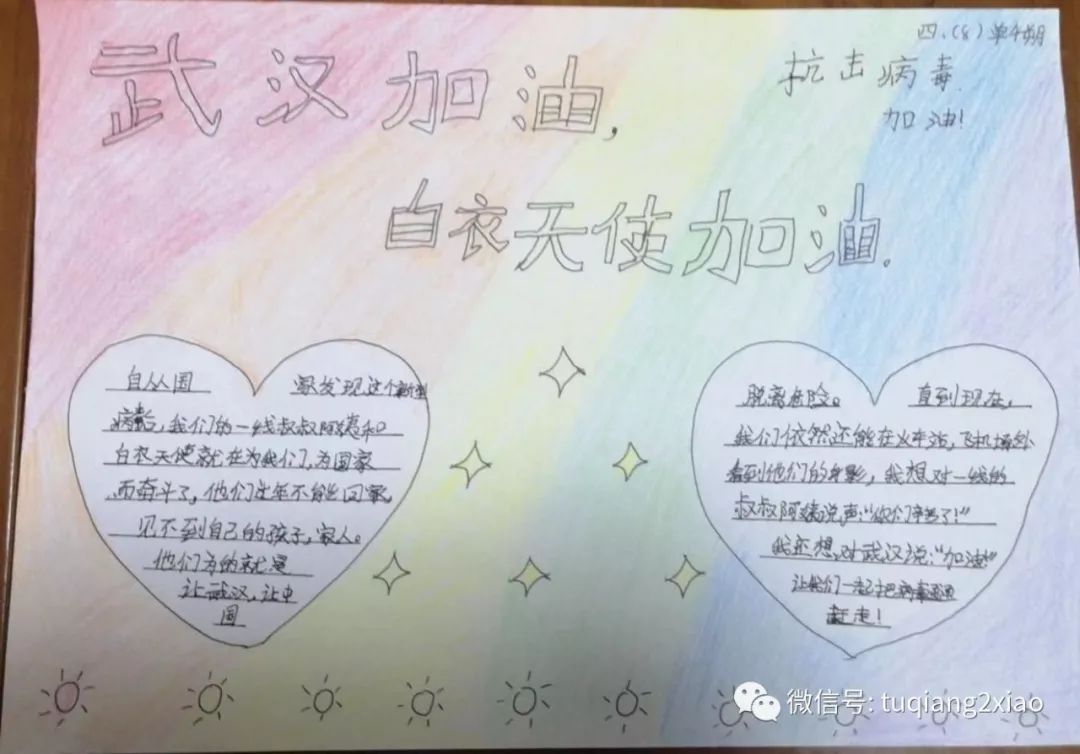 四.(8)
抗击病毒
加油!
武汉加油,
白衣天使加油.
自从国家发现这个新型
病毒,我们的一线叔叔阿姨和
白衣天使就在为我们,为国家
而奋斗了,他们过年不能回家,
见不到自己的孩子,家人。
他们为的就是
让武汉,让中
国
脱离危险。直到现在,
我们依然还能在火车站,飞机场外
看到他们的身影,我想对一线的
叔叔阿姨说声:“你们辛苦了!”
我还想对武汉说:“加油!”
让我们一起把病毒
赶走!
微信号: tuqiang2xiao